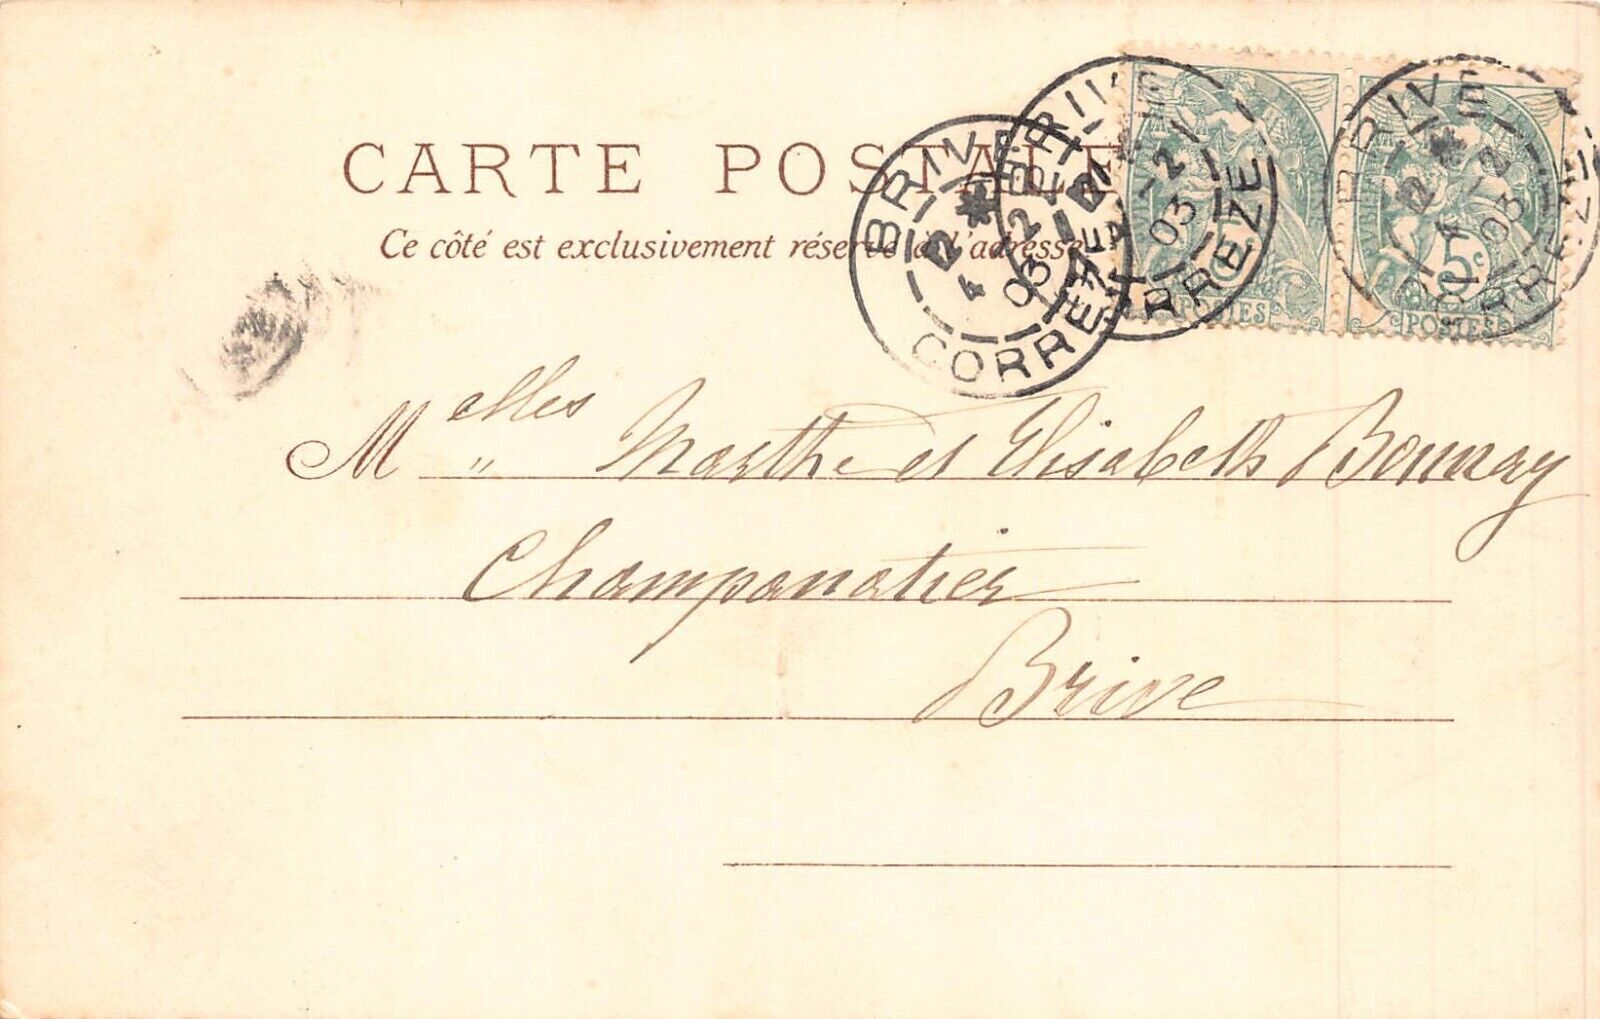 CARTE POSTALE
Ce côté est exclusivement réservé à l'adresse
BRIVE
* 2
4 -2
03
CORREZE
BRIVE
* 2
-2
03
CORREZE
BRIVE
* 2
4 -2
03
CORREZE
POSTES
5c
POSTES
Melles " Marthe et Elisabeth Bonnay
Champanatier
Brive